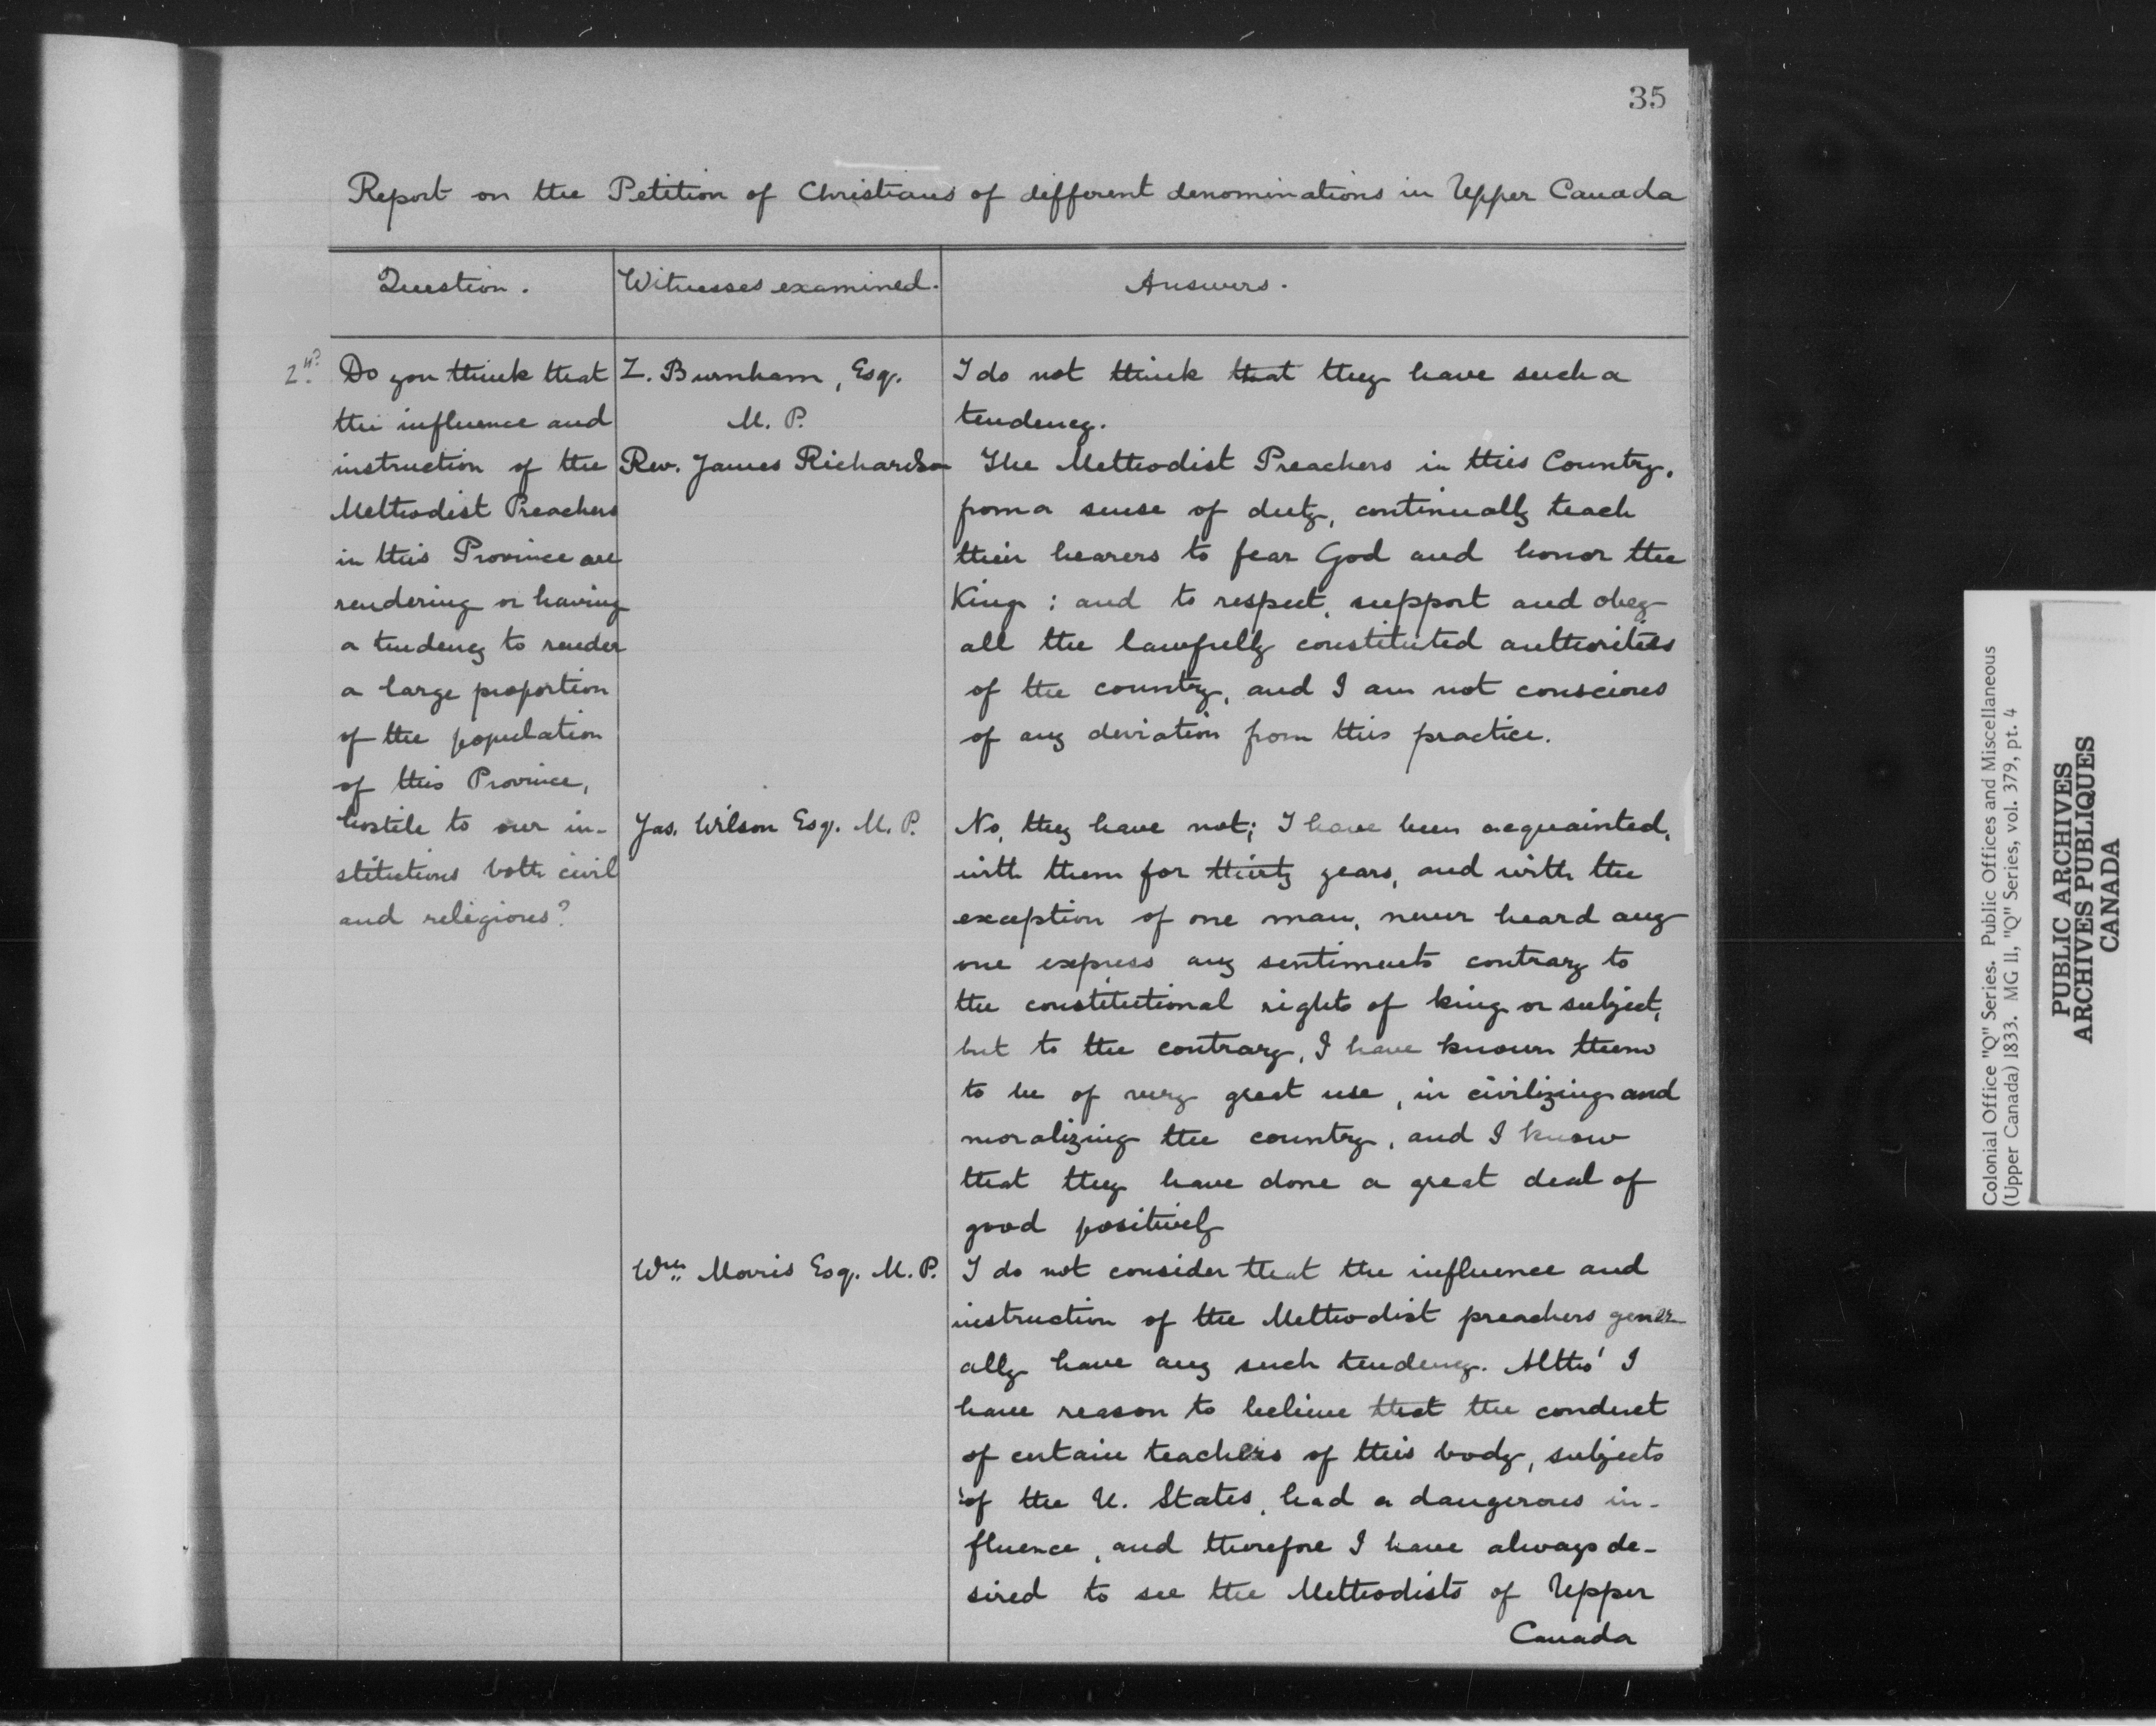 35
Report on the Petition of Christians of different denominations in Upper Canada
Question.
Witnesses examined.
Answers.
2nd.
Do you think that
the influence and
instruction of the
Methodist Preachers
in this Province are
rendering or having
a tendency to render
a large proportion
of the population
of this Province,
hostile to our in-
stitutions both civil
and religious?
Z. Burnham, Esq.
M. P.
I do not think that they have such a
tendency.
Rev. James Richardson
The Methodist Preachers in this Country,
from a sense of duty, continually teach
their hearers to fear God and honor the
King: and to respect, support and obey
all the lawfully constituted authorities
of the country, and I am not conscious
of any deviation from this practice.
Jas. Wilson Esq. M. P.
No, they have not; I have been acquainted,
with them for thirty years, and with the
exception of one man, never heard any
one express any sentiments contrary to
the constitutional rights of king or subject,
but to the contrary, I have known them
to be of very great use, in civilizing and
moralizing the country, and I know
that they have done a great deal of
good positively
Wm. Morris Esq. M. P.
I do not consider that the influence and
instruction of the Methodist preachers gener-
ally have any such tendency. Altho' I
have reason to believe that the conduct
of certain teachers of this body, subjects
of the U. States, had a dangerous in-
fluence, and therefore I have always de-
sired to see the Methodists of Upper
Canada
Colonial Office "Q" Series. Public Offices and Miscellaneous
(Upper Canada) 1833. MG 11, "Q" Series, vol. 379, pt. 4
PUBLIC ARCHIVES
ARCHIVES PUBLIQUES
CANADA